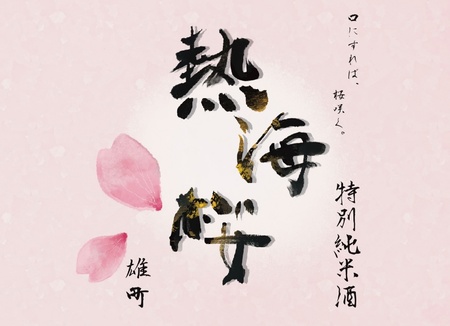 口にすれば、
桜咲く。
熱海桜
特別純米酒
雄町